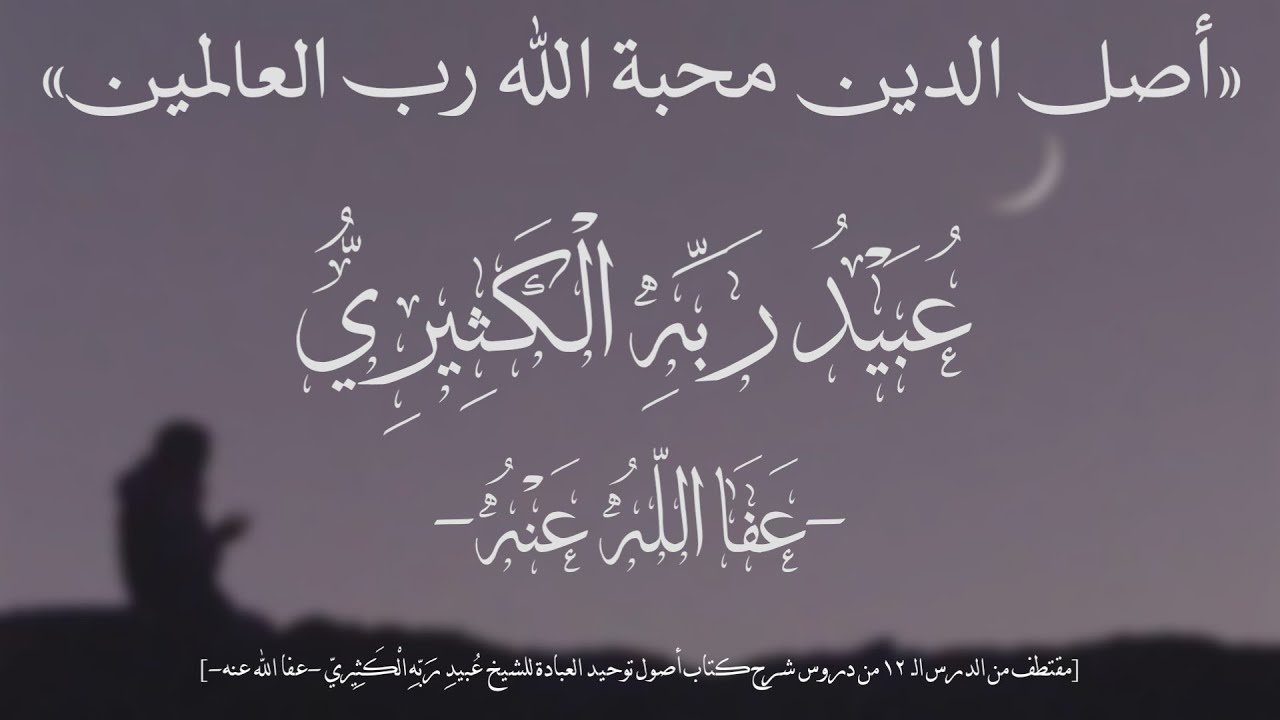 «أصل الدين محبة الله رب العالمين»
عُبَيْدُ رَبِّهِ الْكَثِيرِيُّ
-عَفَا اللَّهُ عَنْهُ-
[مقتطف من الدرس الـ ١٢ من دروس شرح كتاب أصول توحيد العبادة للشيخ عُبيدِ رَبِّهِ الْكَثِيرِيّ -عفا الله عنه-]